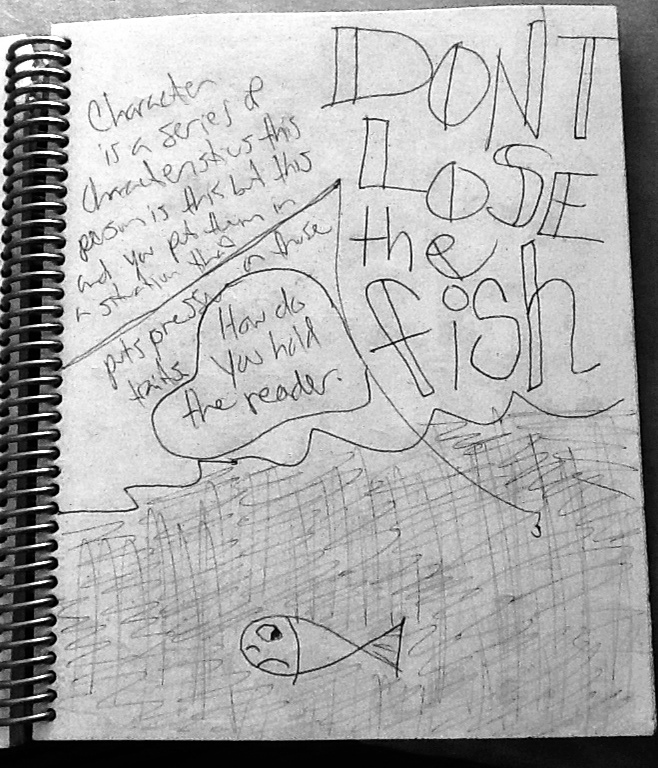 Character
is a series of
characteristics this
person is this but this
and you put them in
a situation that
puts pressure on those
traits
DONT
LOSE
the
fish
How do
you hold
the reader.